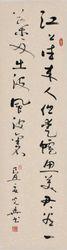 江上往来人但愛鱸魚美君看一
葉舟出没風波裏